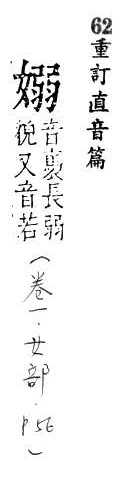 62重訂直音篇
嫋
音裊長弱
貌又音若
(卷一·女部·P56)